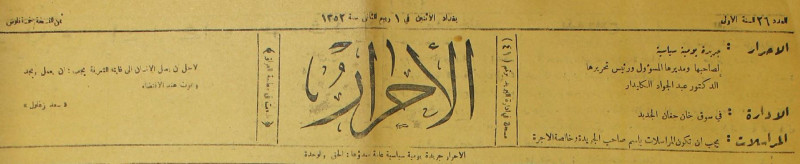 العدد ٢٦ السنة الأولى
بغداد الأثنين في ١ ربيع الثاني سنة ١٣٥٢
ثمن النسخة خمسة فلوس
الاحرار : جريدة يومية سياسية
لصاحبها ومديرها المسؤول ورئيس تحريرها
الدكتور عبد الجواد الكليدار
الادارة : في سوق خان جغان الجديد
المراسلات : يجب ان تكون المراسلات باسم صاحب الجريدة وخالصة الاجرة
مسجلة في ادارة البريد برقم (٤١)
الأحرار
لاجل ان يصل الانسان الى غايته الشريفة يجب : ان يعمل ويجد
ويموت هذه الاقتضاء
« سعد زغلول »
الاحرار جريدة يومية سياسية عامة مبدؤها : الحق والوحدة